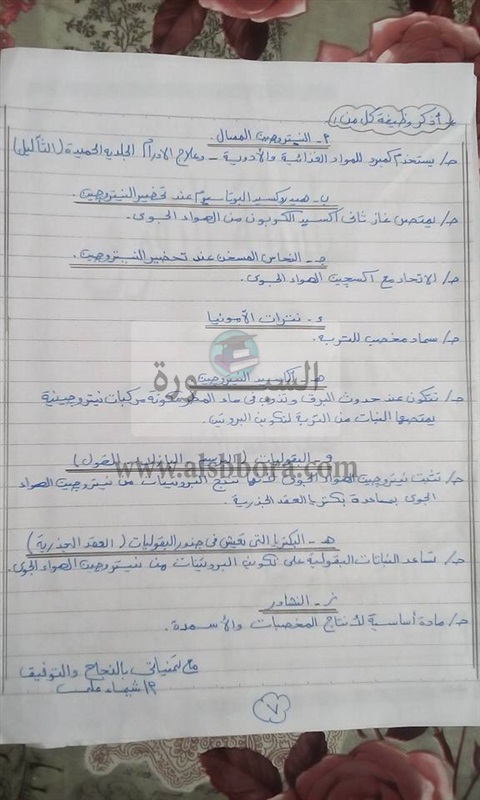 أذكر وظيفة كل من:
٢- النيتروجين المسال.
جـ/ يستخدم كمبرد للمواد الغذائية والأدوية - وعلاج الاورام الجلدية الحميدة (الثآليل)
ب- هيدروكسيد البوتاسيوم عند تحضير النيتروجين.
جـ/ يمتص غاز ثاني أكسيد الكربون من الهواء الجوى.
جـ- النحاس المسخن عند تحضير النيتروجين.
جـ/ الاتحاد مع أكسجين الهواء الجوى.
ء- نترات الأمونيا
جـ/ سماد مخصب للتربة.
السبورة
هـ- النيتروجين
جـ/ تتكون عند حدوث البرق وتذوب فى ماء المطر مركبات نيتروجينية
يمتصها النبات من التربة لتكوين البروتين.
و- البقوليات
www.alsbbora.com
جـ/ تثبت نيتروجين الهواء البروتينات من نيتروجين الهواء
الجوى بمساعدة بكتريا العقد الجذرية.
هـ- البكتريا التى تعيش فى جذور البقوليات (العقد الجذرية)
جـ/ تساعد النباتات البقولية على تكوين البروتينات من نيتروجين الهواء الجوى.
ز- النشادر
جـ/ مادة أساسية لأنتاج المخصبات والأسمدة.
مع تمنياتى بالنجاح والتوفيق
شيماء
٧